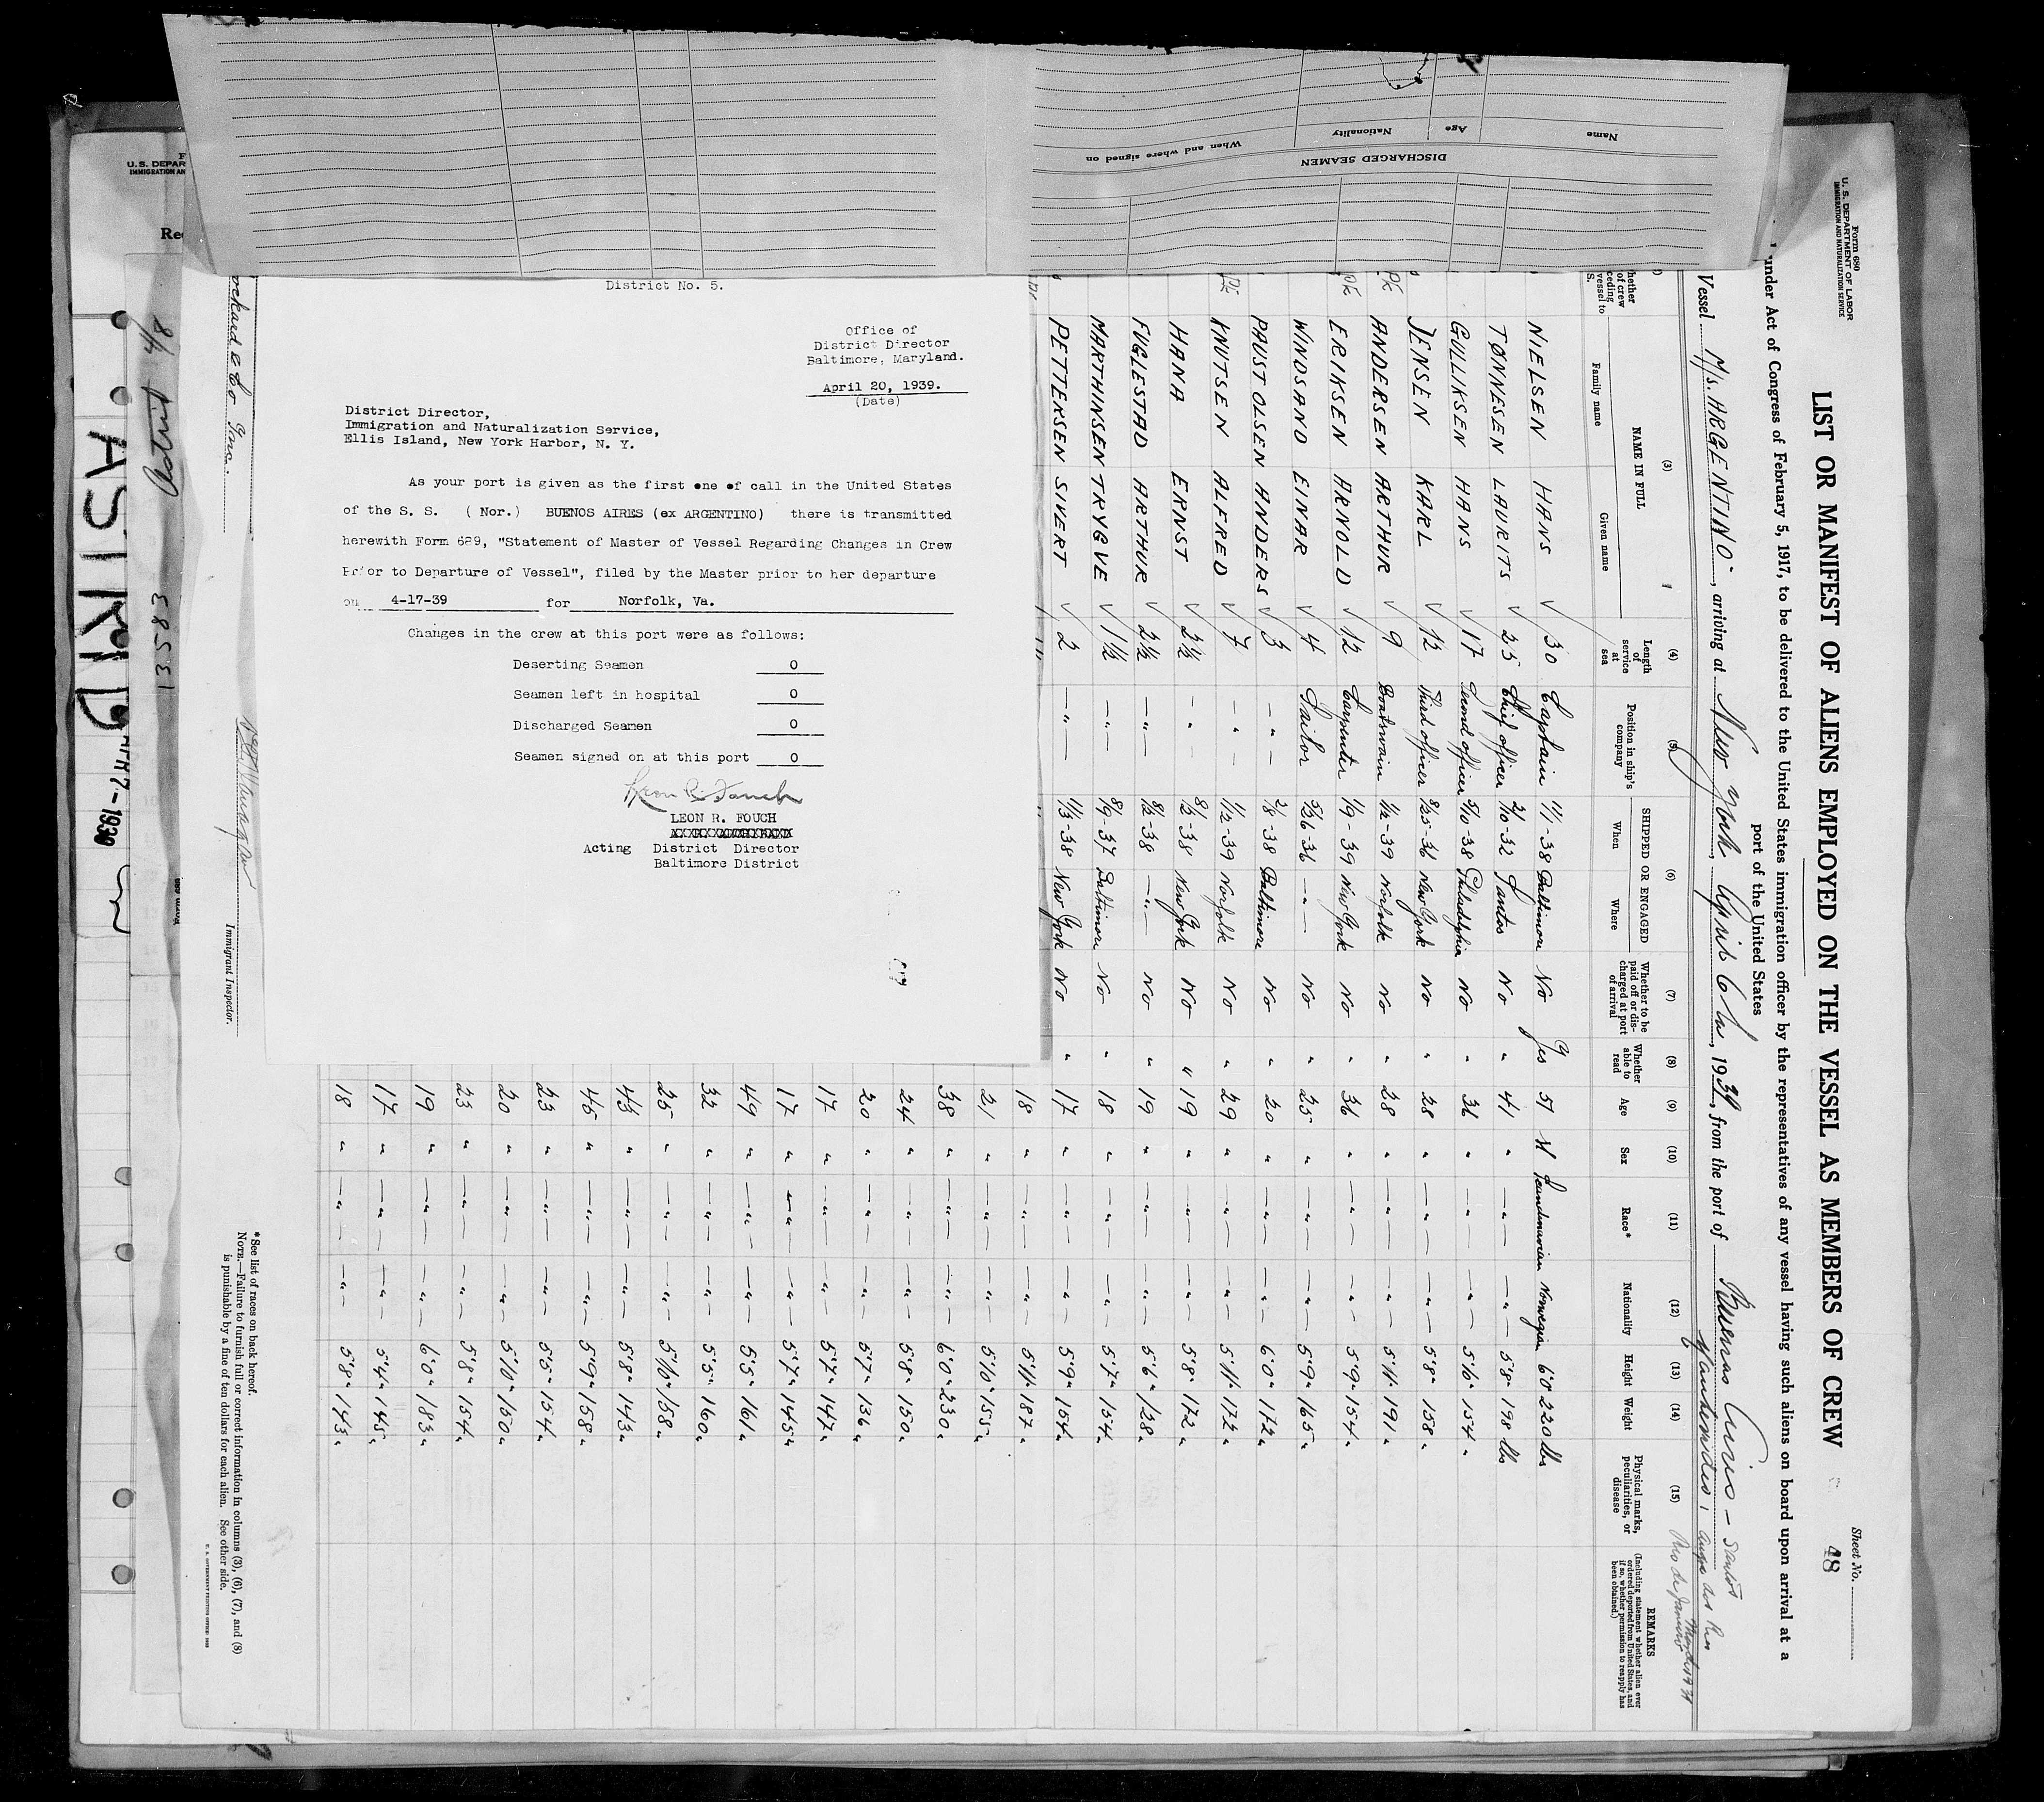 Name
Age
Nationality
When and where signed on
DISCHARGED SEAMEN
District No. 5.
Office of
District Director
Baltimore, Maryland.
April 20, 1939.
(Date)
District Director,
Immigration and Naturalization Service,
Ellis Island, New York Harbor, N. Y.
As your port is given as the first one of call in the United States
of the S. S. ( Nor.) BUENOS AIRES (ex ARGENTINO) there is transmitted
herewith Form 689, "Statement of Master of Vessel Regarding Changes in Crew
Prior to Departure of Vessel", filed by the Master prior to her departure
on 4-17-39 for Norfolk, Va.
Changes in the crew at this port were as follows:
Deserting Seamen 0
Seamen left in hospital 0
Discharged Seamen 0
Seamen signed on at this port 0
LEON R. FOUCH
Acting District Director
Baltimore District
Form 680
U. S. DEPARTMENT OF LABOR
IMMIGRATION AND NATURALIZATION SERVICE
Sheet No.
48
LIST OR MANIFEST OF ALIENS EMPLOYED ON THE VESSEL AS MEMBERS OF CREW
under Act of Congress of February 5, 1917, to be delivered to the United States immigration officer by the representatives of any vessel having such aliens on board upon arrival at a
port of the United States
Vessel M/s. ARGENTINO, arriving at New York, April 6th, 1939, from the port of Buenos Aires - Santos
Rio de Janeiro
(3) (4) (5) (6) (7) (8) (9) (10) (11) (12) (13) (14) (15)
NAME IN FULL
Family name
Given name
Length of service at sea
Position in ship's company
SHIPPED OR ENGAGED
When
Where
Whether to be paid off or discharged at port of arrival
Whether able to read
Age
Sex
Race*
Nationality
Height
Weight
Physical marks, peculiarities, or disease
REMARKS
(Including statement whether alien ever ordered deported from United States, and if so, whether permission to reapply has been obtained.)
NIELSEN HANS 30 Captain 11/1-38 Baltimore No Yes 51 M Scandinavian Norwegian 6'0 220 lbs
TØNNESEN LAURITS 25 Chief officer 2/10-32 Santos No " 41 " —"— —"— 5'8" 198 lbs
GULLIKSEN HANS 17 Second officer 5/10-38 Philadelphia No " 36 " —"— —"— 5'6" 154 "
JENSEN KARL 12 Third officer 8/25-36 New York No " 28 " —"— —"— 5'8" 158 "
PK ANDERSEN ARTHUR 9 Boatswain 1/12-39 Norfolk No " 28 " —"— —"— 5'11" 191 "
PK ERIKSEN ARNOLD 12 Carpenter 1/9-39 New York No " 36 " —"— —"— 5'9" 154 "
WINDSAND EINAR 4 Sailor 5/26-36 —"— No " 25 " —"— —"— 5'9" 165 "
PAUST OLSEN ANDERS 3 —"— 2/8-38 Baltimore No " 20 " —"— —"— 6'0" 172 "
PK KNUTSEN ALFRED 7 —"— 1/12-39 Norfolk No " 29 " —"— —"— 5'11" 172 "
HANA ERNST 2½ —"— 8/12-38 New York No " 19 " —"— —"— 5'8" 172 "
FUGLESTAD ARTHUR 2½ —"— 8/12-38 —"— No " 19 " —"— —"— 5'6" 128 "
MARTHINSEN TRYGVE 1½ —"— 8/19-37 Baltimore No " 18 " —"— —"— 5'7" 154 "
PETTERSEN SIVERT 2 —"— 11/3-38 New York No " 17 " —"— —"— 5'9" 154 "
18 " —"— —"— 5'11" 187 "
21 " —"— —"— 5'10" 155 "
38 " —"— —"— 6'0" 230 "
24 " —"— —"— 5'8" 150 "
20 " —"— —"— 5'7" 136 "
17 " —"— —"— 5'7" 147 "
17 " —"— —"— 5'7" 145 "
49 " —"— —"— 5'5" 161 "
32 " —"— —"— 5'5" 160 "
25 " —"— —"— 5'10" 158 "
43 " —"— —"— 5'8" 143 "
45 " —"— —"— 5'9" 158 "
23 " —"— —"— 5'5" 154 "
20 " —"— —"— 5'10" 150 "
23 " —"— —"— 5'8" 154 "
19 " —"— —"— 6'0" 183 "
17 " —"— —"— 5'4" 145 "
18 " —"— —"— 5'8" 143 "
Immigrant Inspector.
*See list of races on back hereof.
NOTE.—Failure to furnish full or correct information in columns (3), (6), (7), and (8)
is punishable by a fine of ten dollars for each alien. See other side.
U. S. DEPAR
IMMIGRATION AN
Rec
Astrid 4/8
13583
ASTRID
APR 7 - 1939